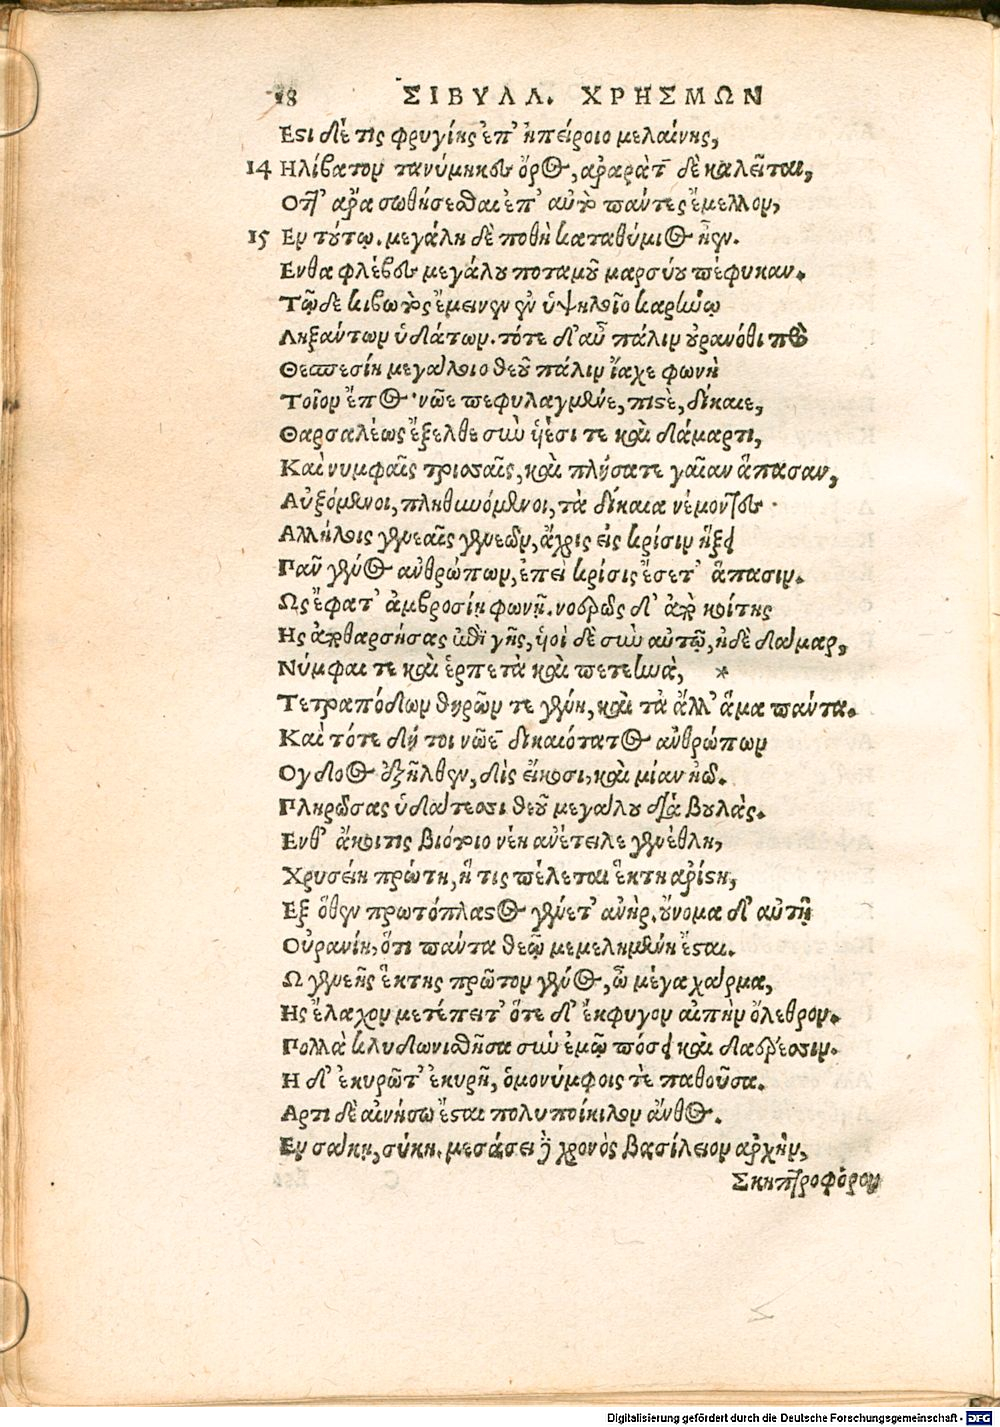 18 ΣΙΒΥΛΛ. ΧΡΗΣΜΩΝ
Εςι δέ τις φρυγίης ἐπ' ἠπείροιο μελαίνης,
14 Ηλίβατον τανύμηκες ὄρος, ἀραρὰτ δὲ καλεῖται,
Οτι ἄρα σωθήσεσθαι ἐπ' αὐτῷ πάντες ἔμελλον,
15 Εν τούτῳ. μεγάλη δὲ ποθὴ καταθύμιος ἦεν.
Ενθα φλέβες μεγάλου ποταμοῦ μαρσύου πέφυκαν.
Τῷδε κιβωτὸς ἔμεινεν ἐν ὑψηλοῖο καρήνῳ
Ληξάντων ὑδάτων. τότε δ' αὖ πάλιν οὐρανόθι πρὸ
Θεσπεσίη μεγάλοιο θεοῦ πάλιν ἴαχε φωνὴ
Τοῖον ἔπος· νῶε πεφυλαγμένε, πιςὲ, δίκαιε,
Θαρσαλέως ἔξελθε σὺν ὑέσι τε καὶ δάμαρτι,
Καὶ νυμφαῖς τρισσαῖς, καὶ πλήσατε γαῖαν ἅπασαν,
Αὐξόμενοι, πληθυνόμενοι, τὰ δίκαια νέμοντες
Αλλήλοις γενεαῖς γενεῶν, ἄχρις εἰς κρίσιν ἥξει
Παν γένος ἀνθρώπων, ἐπεὶ κρίσις ἔσετ' ἅπασιν.
Ως ἔφατ' ἀμβροσίη φωνῇ. νοερῶς δ' ἀπὸ κοίτης
Ης ἀποθαρσήσας ἐπὶ γῆς, ὑοὶ δὲ σὺν αὐτῷ, ἠδὲ δάμαρ,
Νύμφαι τε καὶ ἑρπετὰ καὶ πετεηνὰ, *
Τετραπόδων θηρῶν τε γένη, καὶ τὰ ἄλλ' ἅμα πάντα.
Καὶ τότε δή τοι νῶε δικαιότατος ἀνθρώπων
Ογδοος ἐξῆλθεν, δὶς εἴκοσι, καὶ μίαν ἠῶ.
Πληρώσας ὑδάτεσσι θεοῦ μεγάλου διὰ βουλὰς.
Ενθ' ἄκοιτις βιότοιο νέη ἀνέτειλε γενέθλη,
Χρυσείη πρώτη, ἥ τις πέλεται ἕκτη ἀρίςη,
Εξ ὅθεν πρωτόπλαςος γένετ' ἀνὴρ. οὔνομα δ' αὐτῇ
Οὐρανίη, ὅτι πάντα θεῷ μεμελημένη ἔςαι.
Ω γενεῆς ἕκτης πρῶτον γένος, ὦ μέγα χάρμα,
Ης ἔλαχον μετέπειτ' ὅτε δ' ἔκφυγον αἰπὴν ὄλεθρον.
Πολλὰ κλυδωνισθῆσα σὺν ἐμῷ πόσει καὶ δαέρεσσιν.
Η δ' ἑκυρῶτ' ἑκυρῇ, ὁμονύμφοις τὲ παθοῦσα.
Αρτι δὲ αἰνήσω ἔςαι πολυποίκιλον ἄνθος.
Εν σάκη, σύκη. μεσάσει δὲ χρονὸς βασίλειον ἀρχὴν,
Σκηπτροφόρον
Digitalisierung gefördert durch die Deutsche Forschungsgemeinschaft - DFG